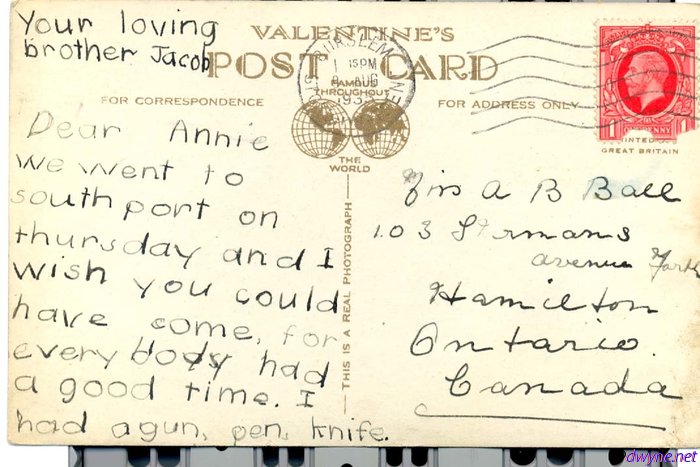 Your loving
brother Jacob
VALENTINE'S
POST CARD
FAMOUS
THROUGHOUT
THE
WORLD
FOR CORRESPONDENCE
FOR ADDRESS ONLY
BURSLEM
15PM
AUG
1 PENNY 1
PRINTED
GREAT BRITAIN
Dear Annie
we went to
southport on
thursday and I
wish you could
have come, for
every body had
a good time. I
had a gun, pen, knife.
THIS IS A REAL PHOTOGRAPH
A B Ball
103
avenue
Hamilton
Ontario.
Canada
dwyne.net